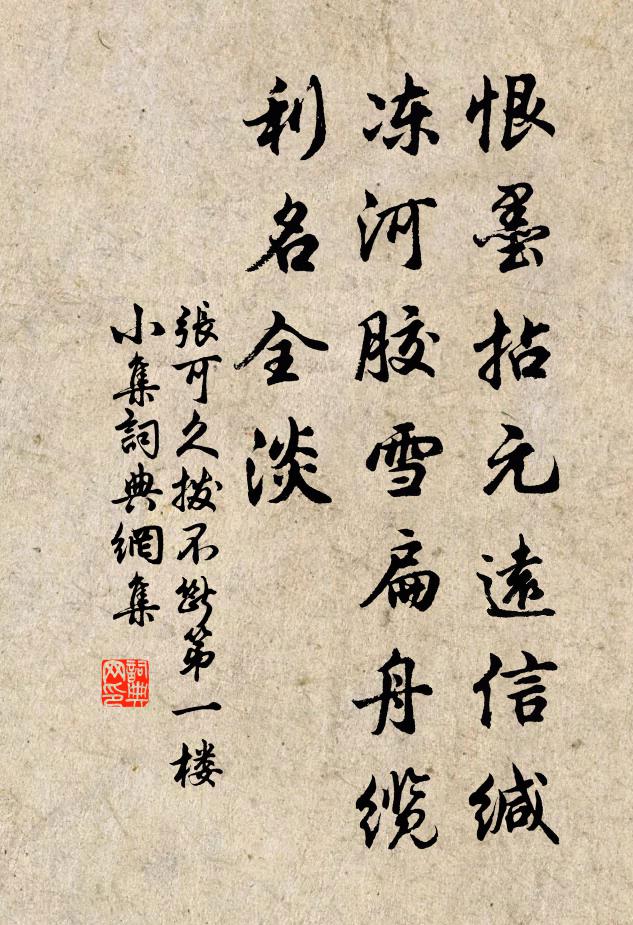 恨墨拈元遠信缄
冻河胶雪扁舟缆
利名全淡
張可久拨不斷第一楼
小集詞典網集
詞典网印